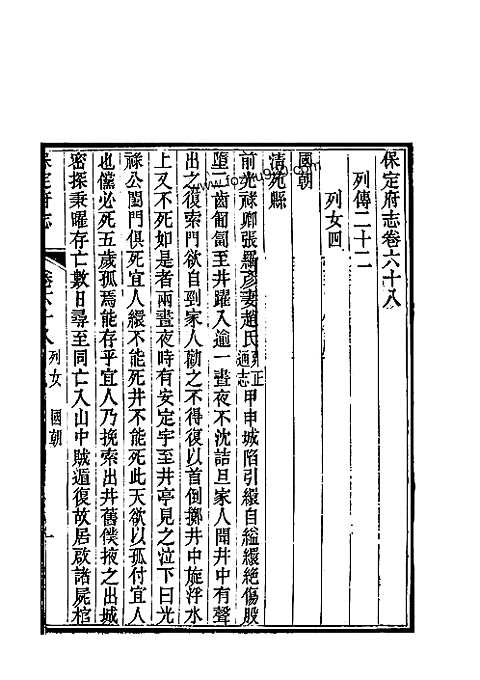 保定府志卷六十八
列傳二十二
列女四
國朝
清苑縣
前光祿卿張羅彥妻趙氏 通志 甲申城陷引繯自縊繯絶傷股
墮二齒匍匐至井躍入逾一晝夜不沈詰旦家人聞井中有聲
出之復索門欲自剄家人勸之不得復以首倒擲井中旋浮水
上又不死如是者兩晝夜時有安定宇至井亭見之泣下曰光
祿公闔門俱死宜人繯不能死井不能死此天欲以孤付宜人
也儻必死五歲孤焉能存乎宜人乃挽索出井舊僕掖之出城
密探秉曜存亡數日尋至同亡入山中賊遁復故居啟諸屍棺
保定府志 卷六十八 列女 國朝 一
www.fozhu920.com